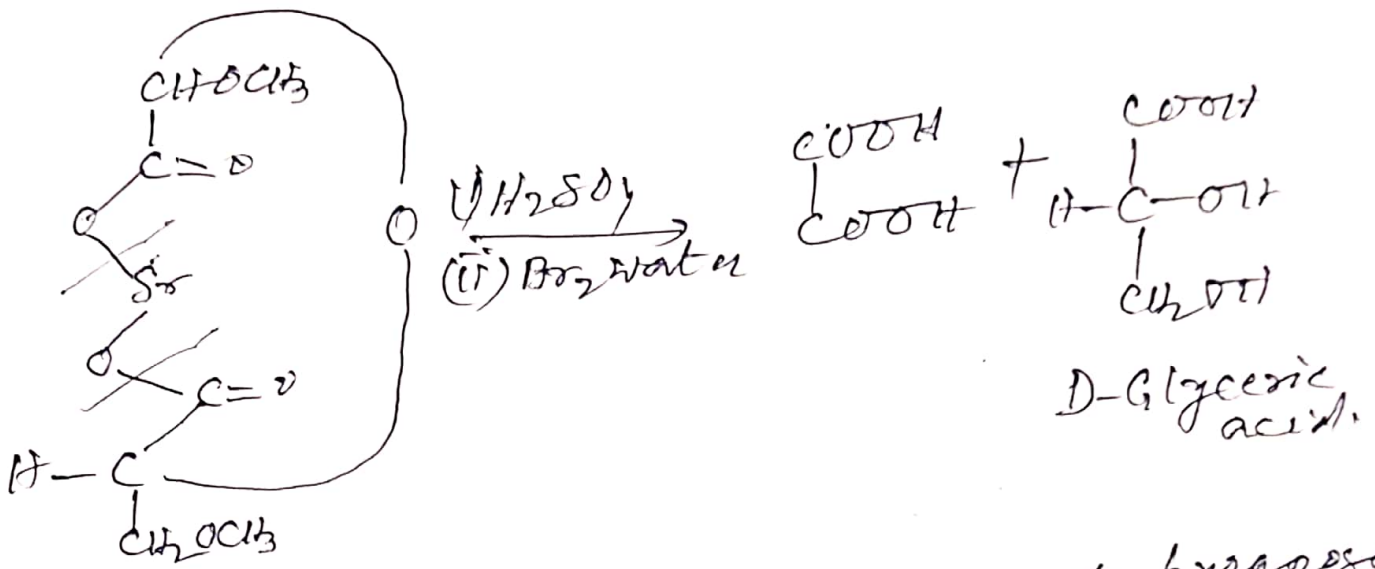 CHOCH3
C=O
O
Sr
O
C=O
H-C
CH2OCH3
O
(i) H2SO4
(ii) Br2 water
COOH
COOH
+
COOH
H-C-OH
CH2OH
D-Glyceric
acid.